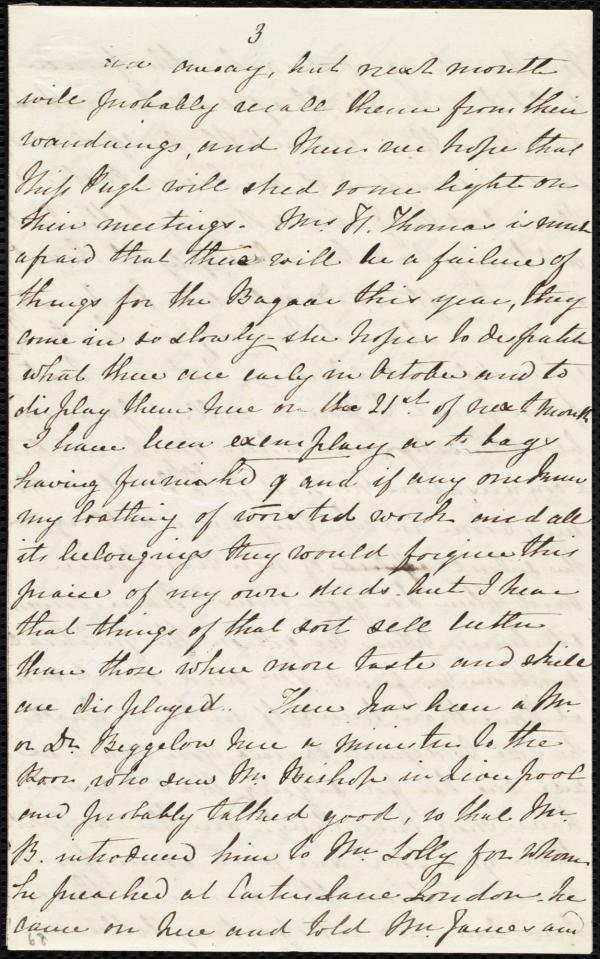 3
are away, but next month
will probably recall them from their
wanderings, and then we hope that
Miss Pugh will shed some light on
their meetings. Mrs H. Thomas is much
afraid that there will be a failure of
things for the Bazaar this year, they
come in so slowly - she hopes to despatch
what there are early in October and to
display them here on the 21st of next month
I have been exemplary as to bags
having furnish'd 9 and if any one knew
my loathing of worsted work and all
its belongings they would forgive this
praise of my own deeds. but I hear
that things of that sort sell better
than those where more taste and skill
are displayed. There has been a Mr.
or Dr. Beggelow here a minister to the
Poor, who saw Mr. Bishop in Liverpool
and probably talked good, so that Mr.
B. introduced him to Mr Solly for whom
he preached at Carter Lane London. he
came on here and told Mr. James and
68